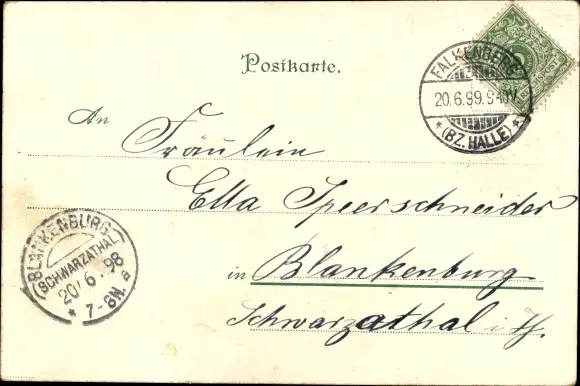 Postkarte.
FALKENBERG
20.6.99.9-10V
* (BZ. HALLE) *
An Fräulein
Ella Speerschneider
in Blankenburg
Schwarzathal i. Th.
BLANKENBURG
(SCHWARZATHAL)
20 6. 98
* 7-8N. a